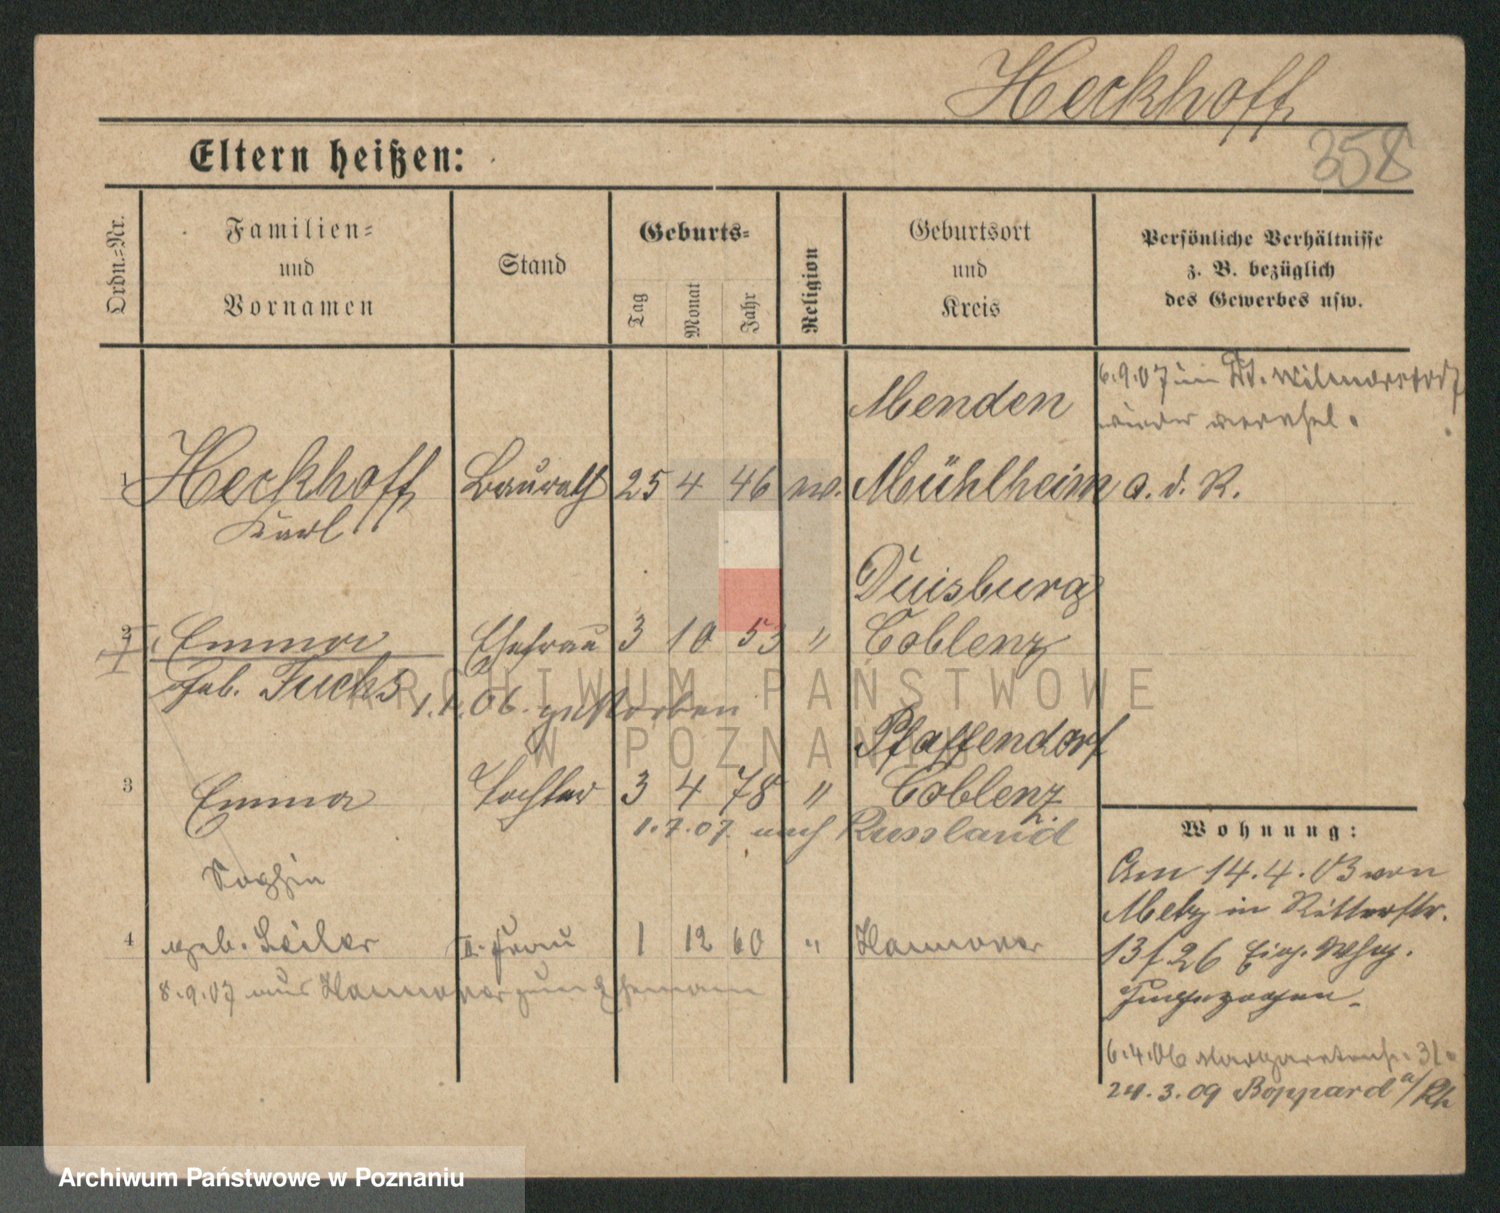 Heckhoff
358
Eltern heißen:
Ordn.-Nr.
Familien-
und
Vornamen
Stand
Geburts-
Tag
Monat
Jahr
Religion
Geburtsort
und
Kreis
Persönliche Verhältnisse
z. B. bezüglich
des Gewerbes usw.
6.9.07 in Dt. Wilmersdorf
wieder verehel.
Menden
1 Heckhoff Baurath 25 4 46 ev. Mühlheim a. d. R.
Karl
Duisburg
2 Emma Ehefrau 3 10 53 " Coblenz
geb. Fuchs
06. gestorben
Pfaffendorf
3 Emma Tochter 3 4 78 " Coblenz
1.7.07. nach Russland
Wohnung:
Am 14.4.03 von
Metz in Ritterstr.
13 26
zugezogen.
Sophie
4 geb. Seiler II. Frau 1 12 60 " Hannover
8.9.07 aus Hannover zum Ehemann
6.4.06 Margaretenstr. 31
24.3.09 Boppard a/Rh
ARCHIWUM PAŃSTWOWE
W POZNANIU
Archiwum Państwowe w Poznaniu